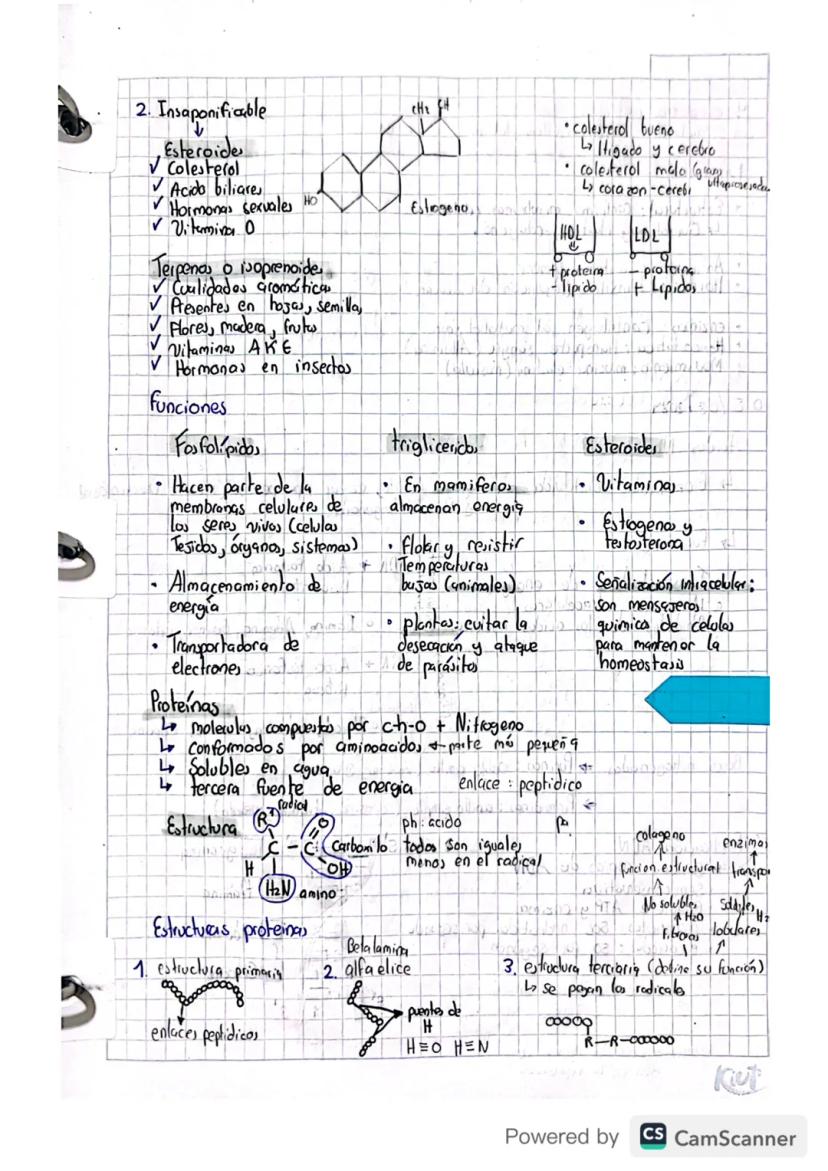 2. Insaponificable
↓
Esteroides
✓ Colesterol
✓ Acido biliares
✓ Hormonas sexuales
✓ Vitamina D
CH3 OH
HO
Estrogeno
• colesterol bueno
↳ Higado y cerebro
• colesterol malo (grasas ultraprocesadas
↳ corazon-cerebr
HDL
LDL
+ proteina
- lipido
- proteina
+ Lipidos
Terpenos o isoprenoides
✓ Cualidades aromáticas
✓ Presentes en hojas, semillas
✓ Flores, madera, frutos
✓ Vitaminas A K E
✓ Hormonas en insectos
funciones
Fosfolípidos
• Hacen parte de la
membranas celulares de
los seres vivos (celulas
Tejidos, órganos, sistemas)
• Almacenamiento de
energía
• Transportadora de
electrones
trigliceridos
• En mamiferos
almacenan energia
• flotar y resistir
Temperaturas
bajas (animales)
• plantas: evitar la
desecación y ataque
de parásitos
Esteroides
• Vitaminas
• Estrogeno y
testosterona
• Señalización intracelular:
son mensajeros
quimica de celulas
para mantener la
homeostasis
Proteínas
↳ moleculas compuestas por ch-o + Nitrogeno
↳ conformados por aminoacidos → parte más pequeña
↳ Solubles en agua
↳ tercera fuente de energia
enlace : peptidico
Estructura
radial
R
O
C - C
OH
H
H2N
Carbonilo
amino
ph: acido
todos son iguales
menos en el radical
colageno
↑
funcion estructural
↑
No solubles
↑ H2O
Fibrosas
enzimas
↑
transpor
↑
Solubles
H2
lobulares
Estructuras proteinas
1. estructura primaria
enlaces peptidicos
Beta lamina
2. alfa elice
puentes de
H
H≡O H≡N
3. estructura terciaria (define su función)
↳ se pegan los radicales
R-R
Kiut
Powered by CS CamScanner